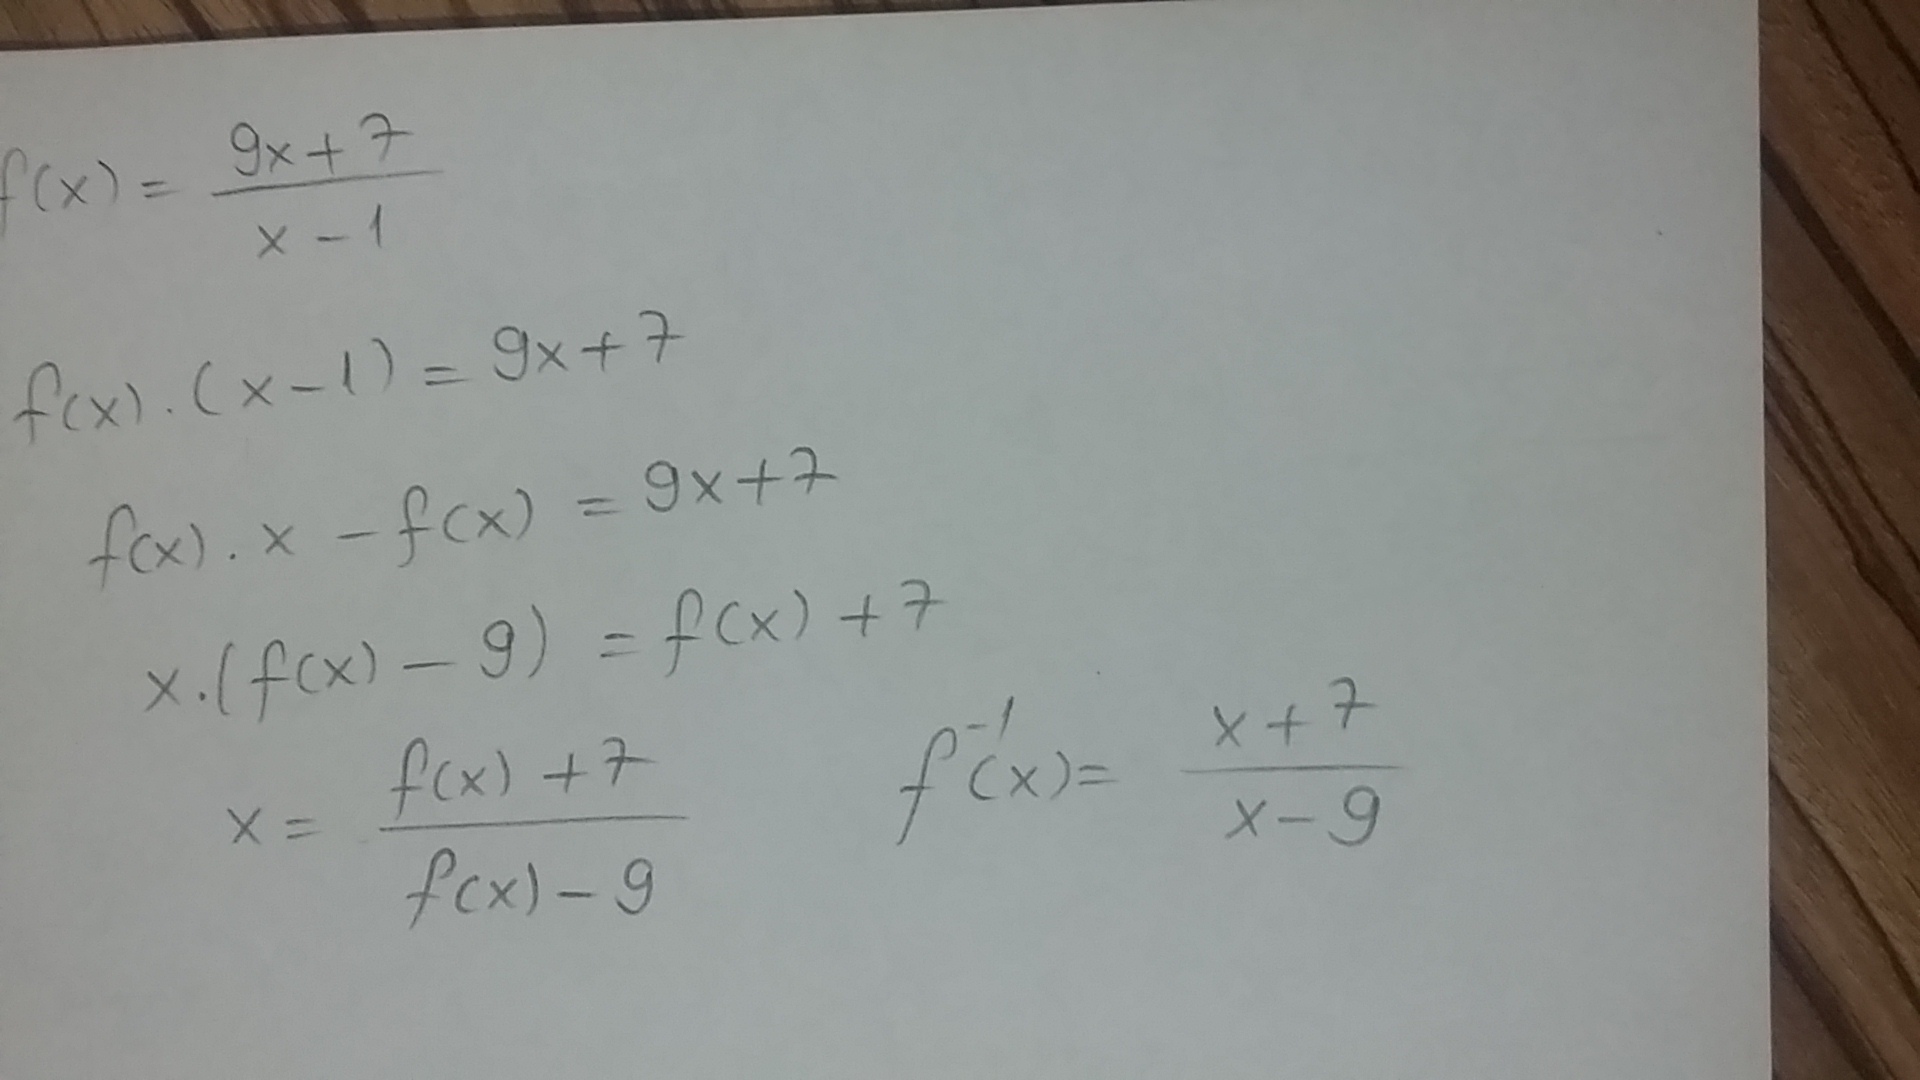 f(x) = (9x+7)/(x-1)
f(x).(x-1) = 9x+7
f(x).x - f(x) = 9x+7
x.(f(x)-9) = f(x)+7
x = (f(x)+7)/(f(x)-9)
f⁻¹(x) = (x+7)/(x-9)